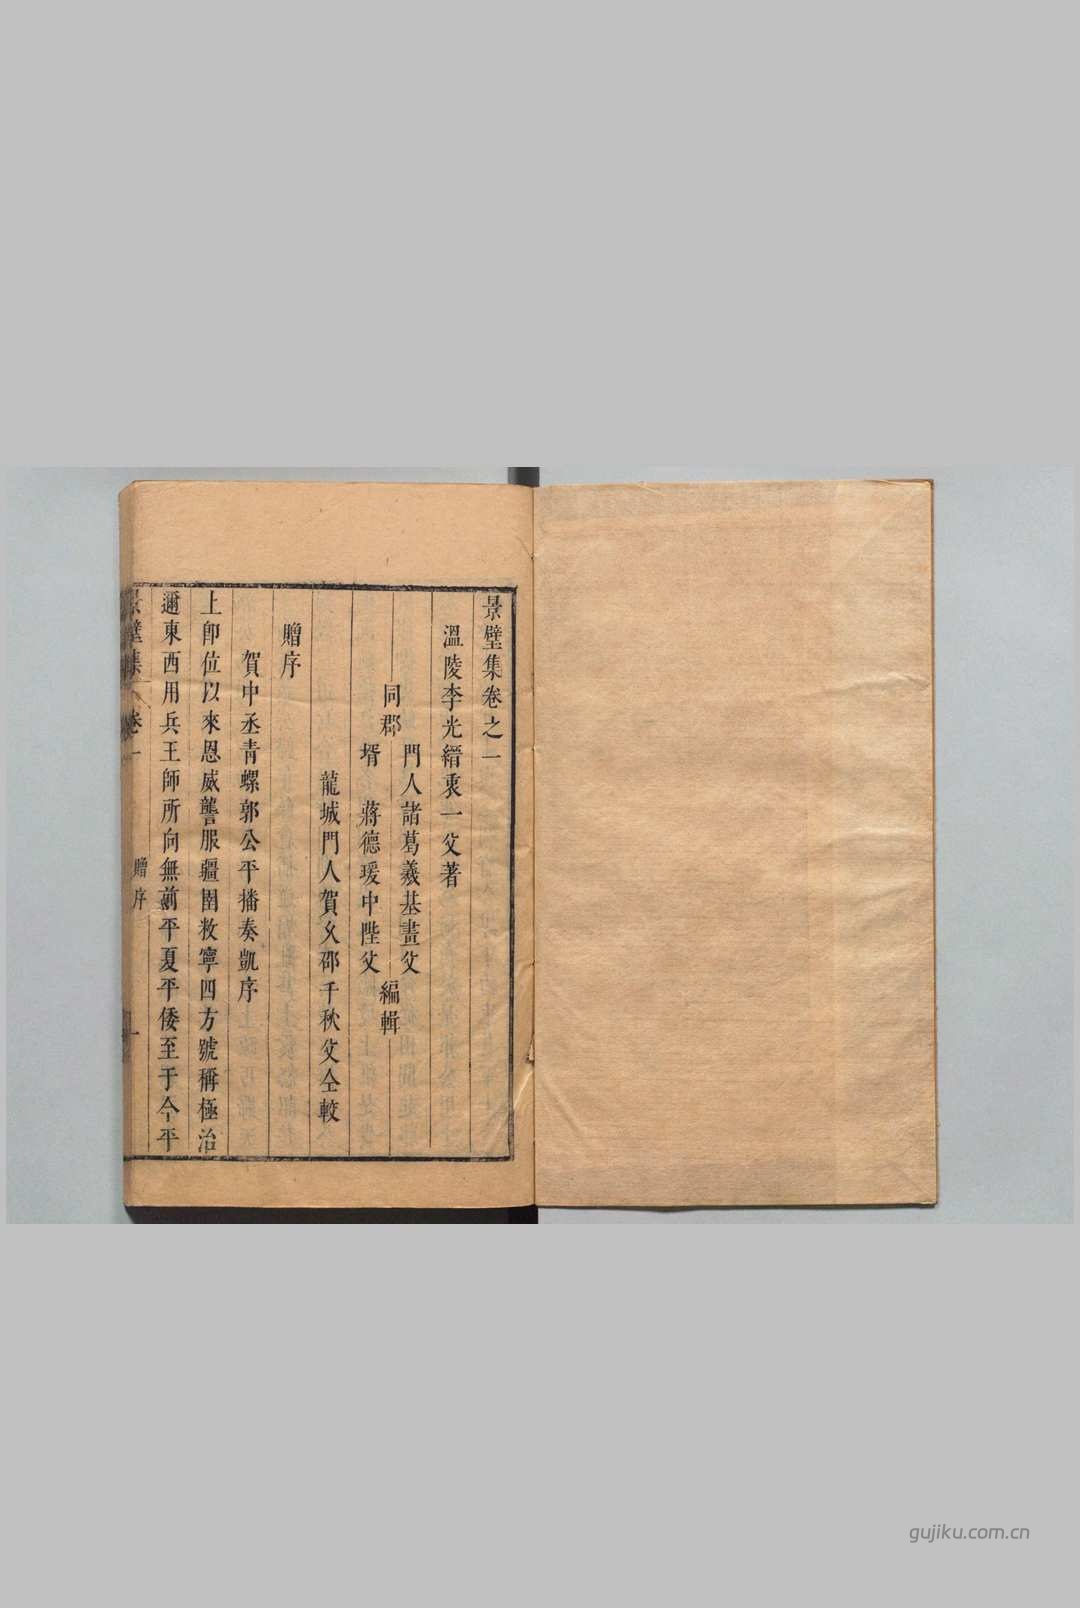 景璧集卷之一
溫陵李光縉衷一父著
同郡
門人諸葛羲基畫父
壻蔣德瑗中陛父
編輯
龍城門人賀久邵千秋父仝較
贈序
賀中丞青螺郭公平播奏凱序
上即位以來恩威讋服疆圉敉寧四方號稱極治
邇東西用兵王師所向無前平夏平倭至于今平
景璧集 卷一 贈序 一
gujiku.com.cn